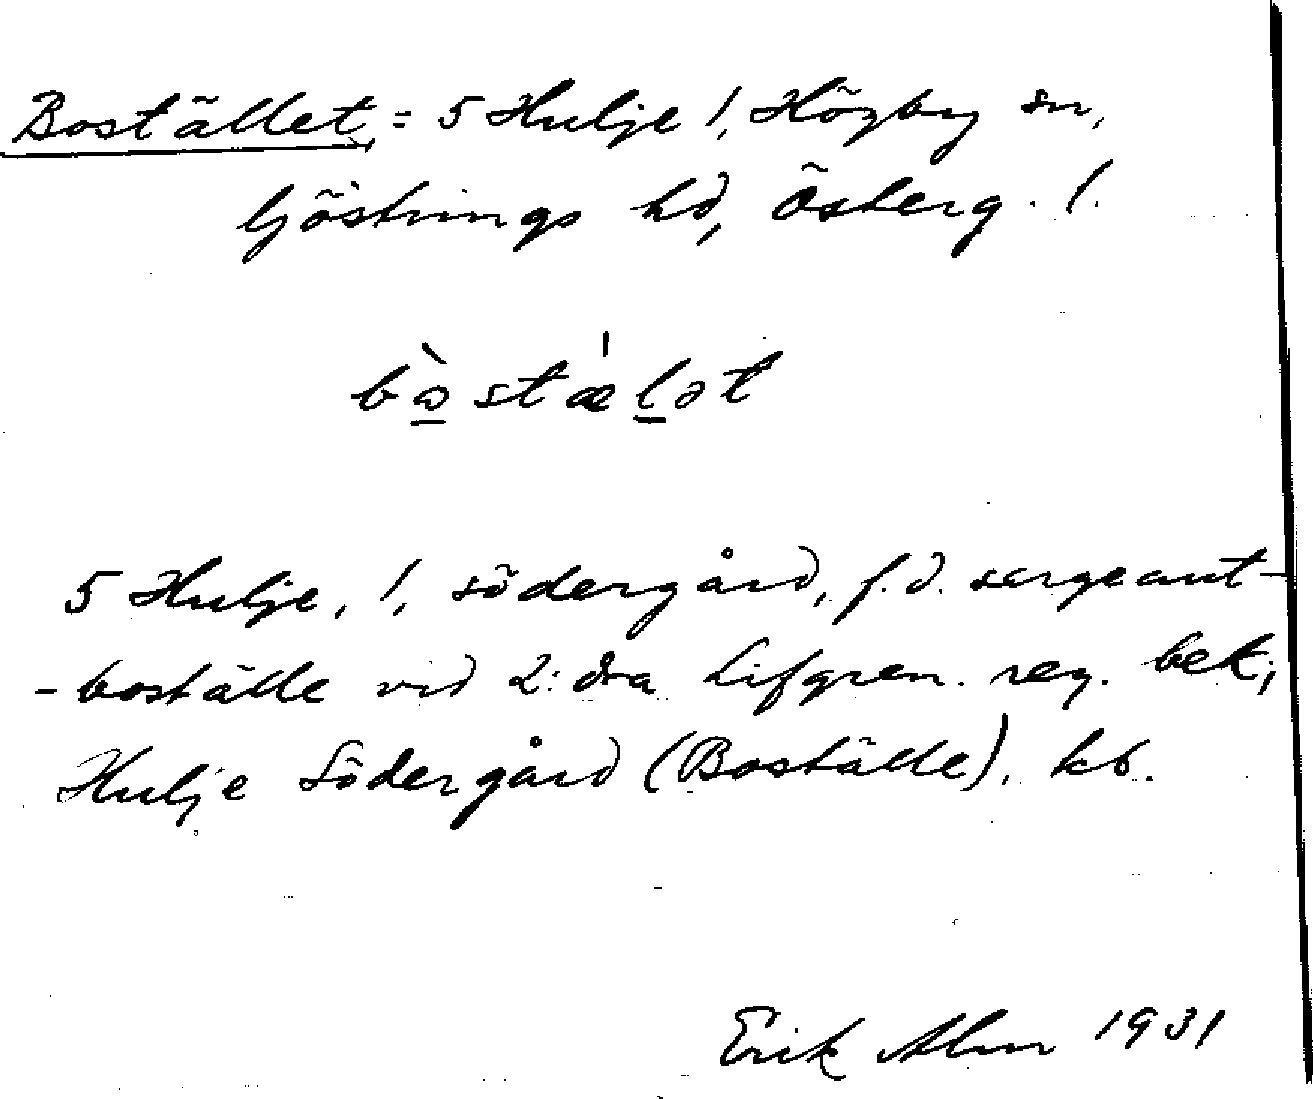 Bostället = 5 Hulje 1, Högby sn,
Göstrings hd, Österg. l.
bòstæ̍lət
5 Hulje, 1, södergård, f.d. sergeant-
-boställe vid 2:dra Lifgren. reg. bek;
Hulje Södergård (Boställe), kb.
Erik Alm 1931